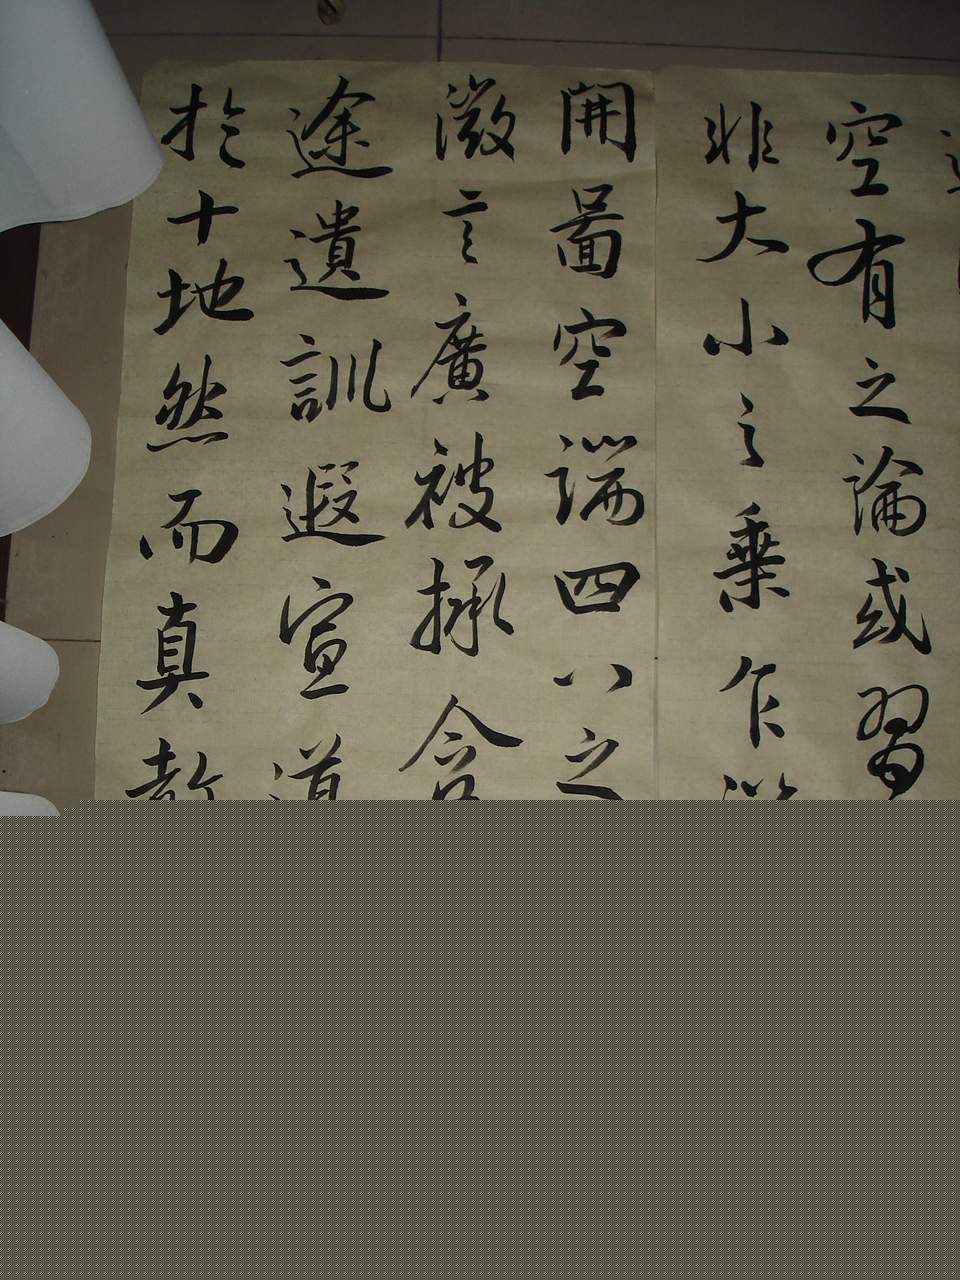 空有之論或習
非大小之乗乍沿
開圖空端四八之
微言廣被拯含
途遺訓遐宣導
於十地然而真教